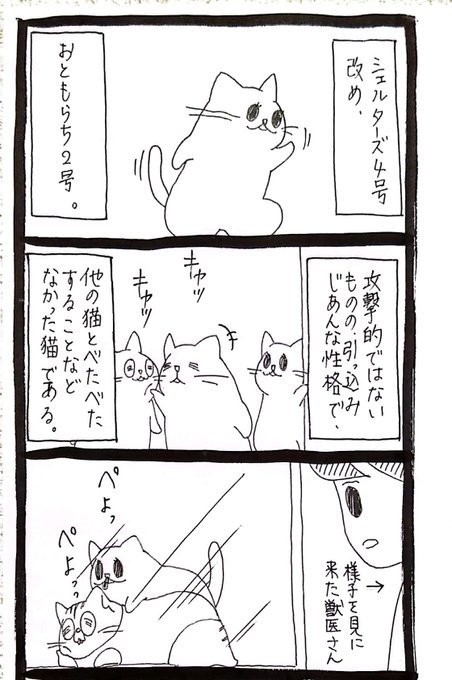 シェルターズ4号
改め、
おともらち2号。
攻撃的ではない
ものの、引っ込み
じあんな性格で、
キャッ
キャッ
他の猫とべたべた
することなど
なかった猫である。
様子を見に
来た獣医さん
ぺよっ
ぺよっっ